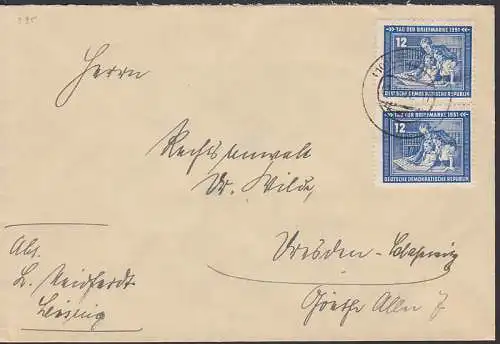 TAG DER BRIEFMARKE 1951
12
DEUTSCHE DEMOKRATISCHE REPUBLIK
TAG DER BRIEFMARKE 1951
12
DEUTSCHE DEMOKRATISCHE REPUBLIK
Herrn
Rechtsanwalt
Dr. Wilde,
Dresden-Blasewitz
Goethe Allee 7
Abs.
L. Neidhardt
Leipzig